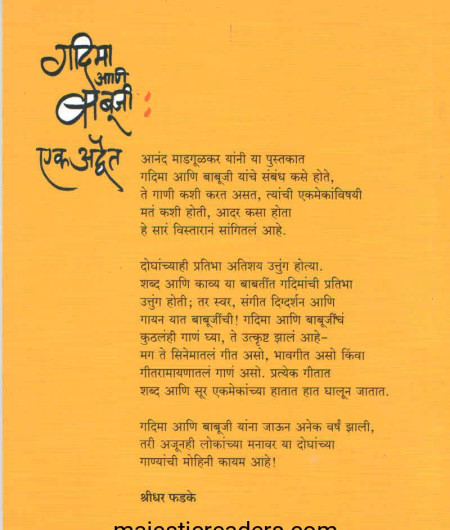 गदिमा
आणि
बाबूजी :
एक अद्वैत
आनंद माडगूळकर यांनी या पुस्तकात
गदिमा आणि बाबूजी यांचे संबंध कसे होते,
ते गाणी कशी करत असत, त्यांची एकमेकांविषयी
मतं कशी होती, आदर कसा होता
हे सारं विस्तारानं सांगितलं आहे.
दोघांच्याही प्रतिभा अतिशय उत्तुंग होत्या.
शब्द आणि काव्य या बाबतींत गदिमांची प्रतिभा
उत्तुंग होती; तर स्वर, संगीत दिग्दर्शन आणि
गायन यात बाबूजींची! गदिमा आणि बाबूजींचं
कुठलंही गाणं घ्या, ते उत्कृष्ट झालं आहे–
मग ते सिनेमातलं गीत असो, भावगीत असो किंवा
गीतरामायणातलं गाणं असो. प्रत्येक गीतात
शब्द आणि सूर एकमेकांच्या हातात हात घालून जातात.
गदिमा आणि बाबूजी यांना जाऊन अनेक वर्षं झाली,
तरी अजूनही लोकांच्या मनावर या दोघांच्या
गाण्यांची मोहिनी कायम आहे!
श्रीधर फडके
majesticreaders.com